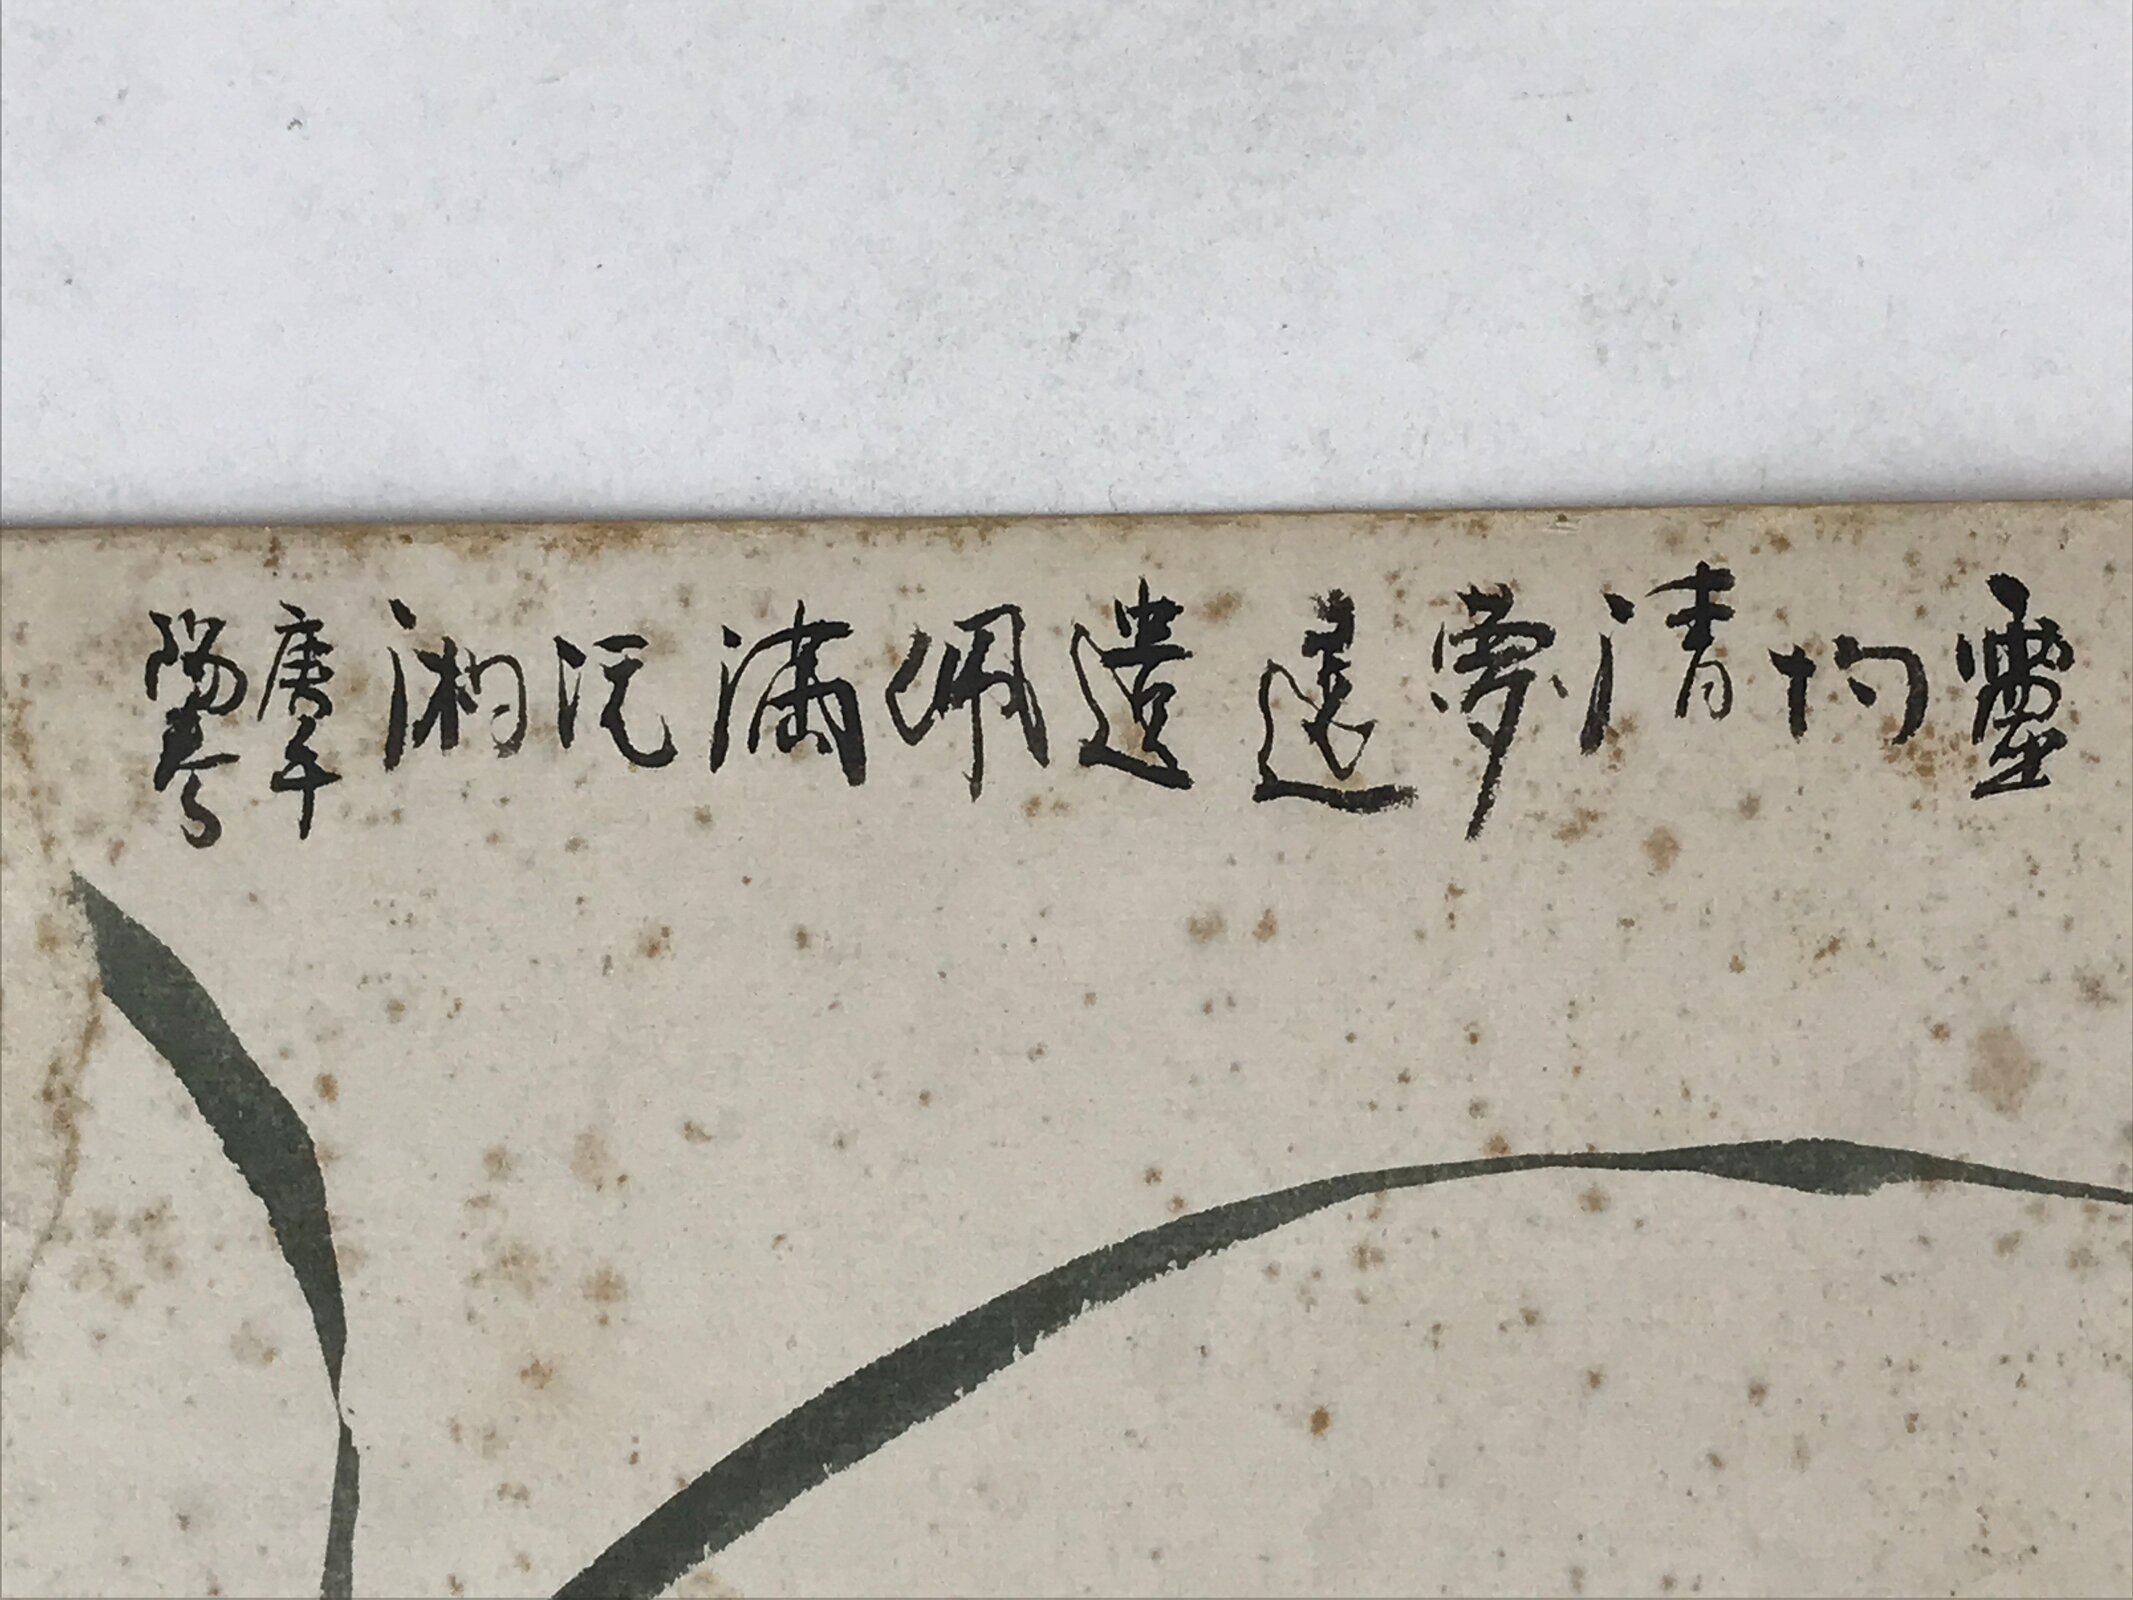 靈均清夢遠遺佩滿沅湘
庚午
陽春